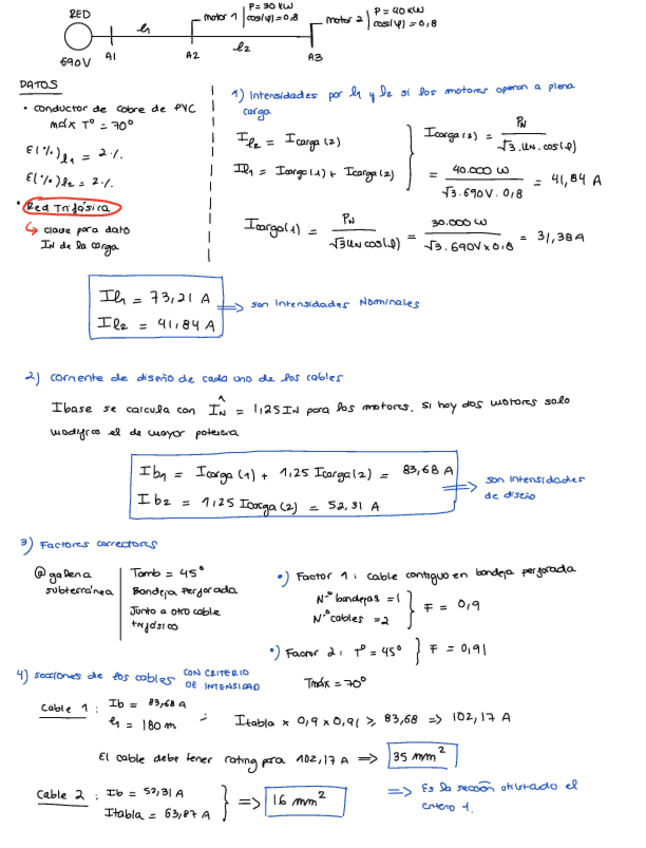 RED
690V
A1
l1
A2
l2
A3
motor 1 | P = 30 KW
cos(φ) = 0,8
motor 2 | P = 40 KW
cos(φ) = 0,8
DATOS
• conductor de cobre de PVC
máx Tº = 70º
E(%)l1 = 2%.
E(%)l2 = 2%.
• Red Trifásica
↳ clave para dato
IN de la carga
1) Intensidades por l1 y l2 si los motores operan a plena
carga
Il2 = Icarga(2)
Il1 = Icarga(1) + Icarga(2)
Icarga(2) = PN / √3.UN.cos(φ)
= 40.000 W / √3.690V.0,8 = 41,84 A
Icarga(1) = PN / √3UNcos(φ) = 30.000 W / √3.690V×0,8 = 31,38A
Il1 = 73,21 A
Il2 = 41,84 A
=> son Intensidades Nominales
2) corriente de diseño de cada uno de los cables
Ibase se calcula con ÎN = 1,25IN para los motores. Si hay dos motores solo
modifico el de mayor potencia
Ib1 = Icarga(1) + 1,25 Icarga(2) = 83,68 A
Ib2 = 1,25 Icarga(2) = 52,31 A
=> son intensidades
de diseño
3) Factores correctores
@galena
subterránea
Tamb = 45º
Bandeja Perforada
Junto a otro cable
trifásico
•) Factor 1: cable contiguo en bandeja perforada
Nº bandejas = 1
Nº cables = 2
} F = 0,9
•) Factor 2: Tº = 45º } F = 0,91
Tmáx = 70º
4) secciones de los cables CON CRITERIO
DE INTENSIDAD
Cable 1 : Ib = 83,68 A
l1 = 180 m
; Itabla × 0,9 × 0,91 ≥ 83,68 => 102,17 A
El cable debe tener rating para 102,17 A => 35 mm²
Cable 2 : Ib = 52,31 A
Itabla = 63,87 A
} => 16 mm²
=> Es la sección utilizando el
criterio 1.